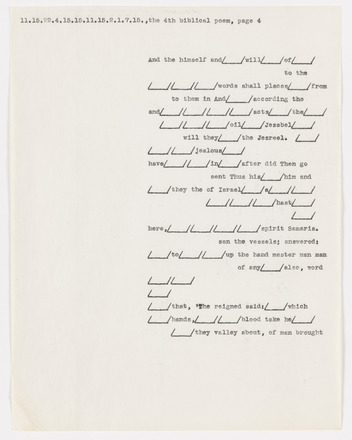 11.15.22.4.15.15.11.15.2.1.7.15.,the 4th biblical poem, page 4
And the himself and/___/will/___/of/___/
to the
/___//___//___/words shall places/___/from
to them in And/___/according the
and/___//___//___//___/acts/___/the/___/
/___//___//___/oil/___/Jezebel/___/
will they/___/the Jezreel. /___/
/___//___/jealous/___/
have/___//___/in/___/after did Them go
sent Thus his/___/him and
/___/they the of Israel/___/a/___//___/
/___//___//___/hast/___/
/___/
here,/___//___//___//___/spirit Samaria.
son the vessels; answered:
/___/to/___//___/up the hand master men man
of any/___/also, word
/___//___/
/___/
/___/that, "The reigned said:/___/which
/___/hands,/___//___/blood take he/___/
/___/they valley about, of man brought